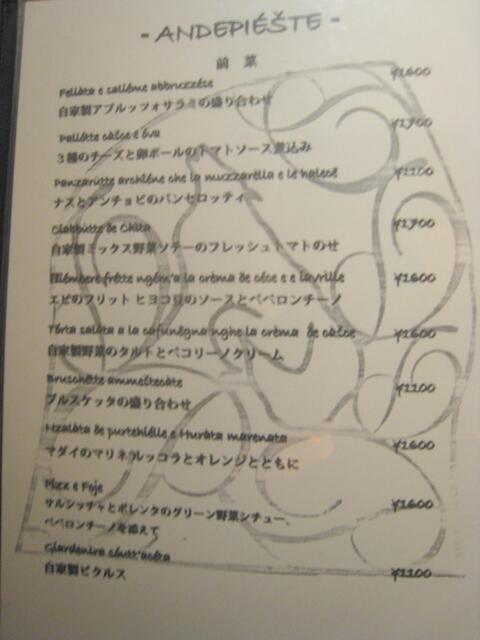 - ANDEPIÉŠTE -
前菜
Fellàta e sallème abbruzzése ¥1600
自家製アブルッツォサラミの盛り合わせ
Pallótte càšce e óva ¥1700
3種のチーズと卵ボールのトマトソース煮込み
Panzarùtte che la muzzarèlla e le halecě ¥1100
ナスとアンチョビのパンセロッティ
Ciabbùtte de Chità ¥1700
自家製ミックス野菜ソテーのフレッシュトマトのせ
frétte ngém'a la crèma de céce e ¥1600
エビのフリット ヒヨコ豆のソースとペペロンチーノ
Tórta salàta a la cafunégna nghe la crèma de càšce ¥1600
自家製野菜のタルトとペコリーノクリーム
Bruschètte ammeštecàte ¥1100
ブルスケッタの盛り合わせ
Nzalàta de purtehiélle e marenata ¥1600
マダイのマリネ ルッコラとオレンジとともに
Pizz e Foje ¥1600
サルシッチャとポレンタのグリーン野菜シチュー、
ペペロンチーノを添えて
Giardenira ¥1100
自家製ピクルス